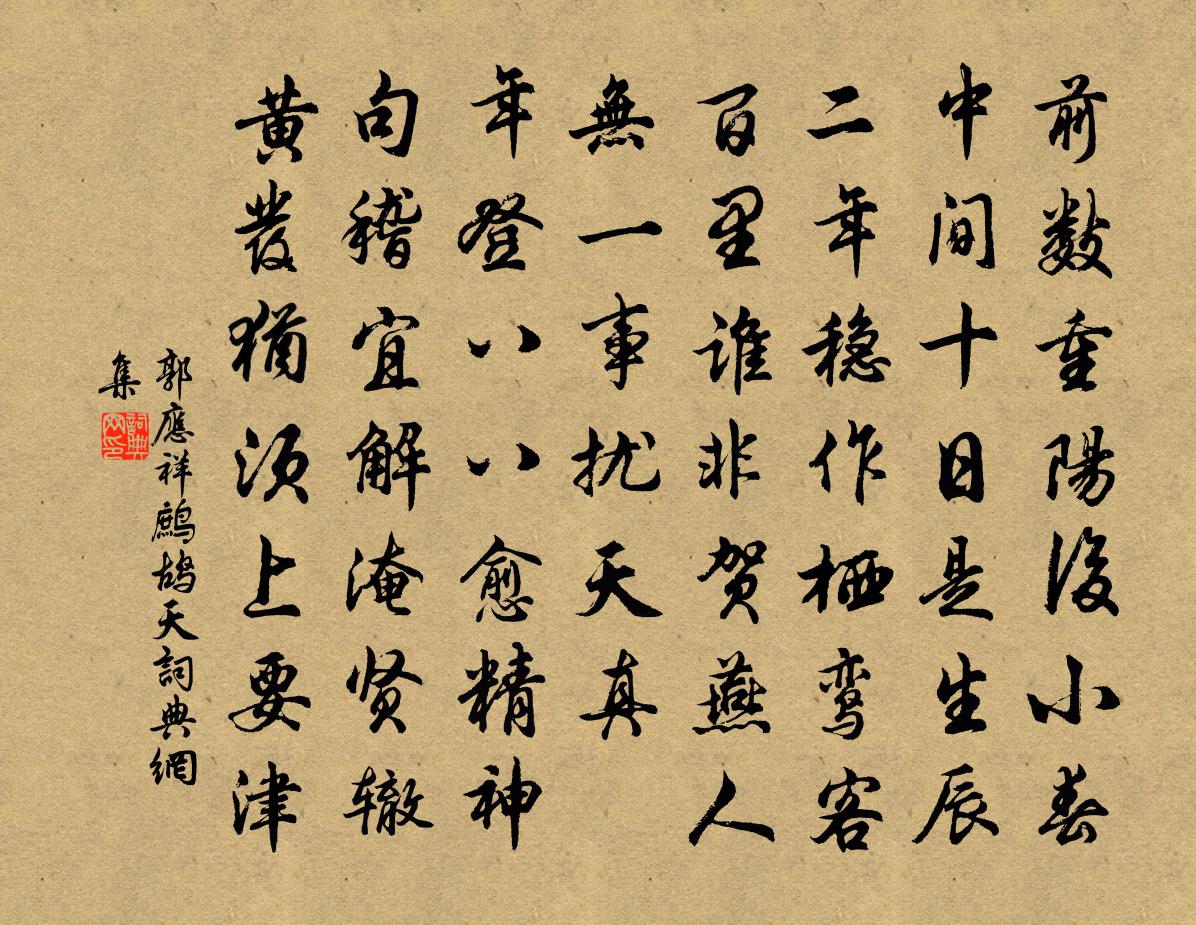 前数重陽後小春
中间十日是生辰
二年稳作栖鸾客
百里谁非贺燕人
無一事扰天真
年登八八愈精神
句稽宜解淹贤辙
黄发猶须上要津
郭應祥鷓鴣天詞典網
集
詞典
网印